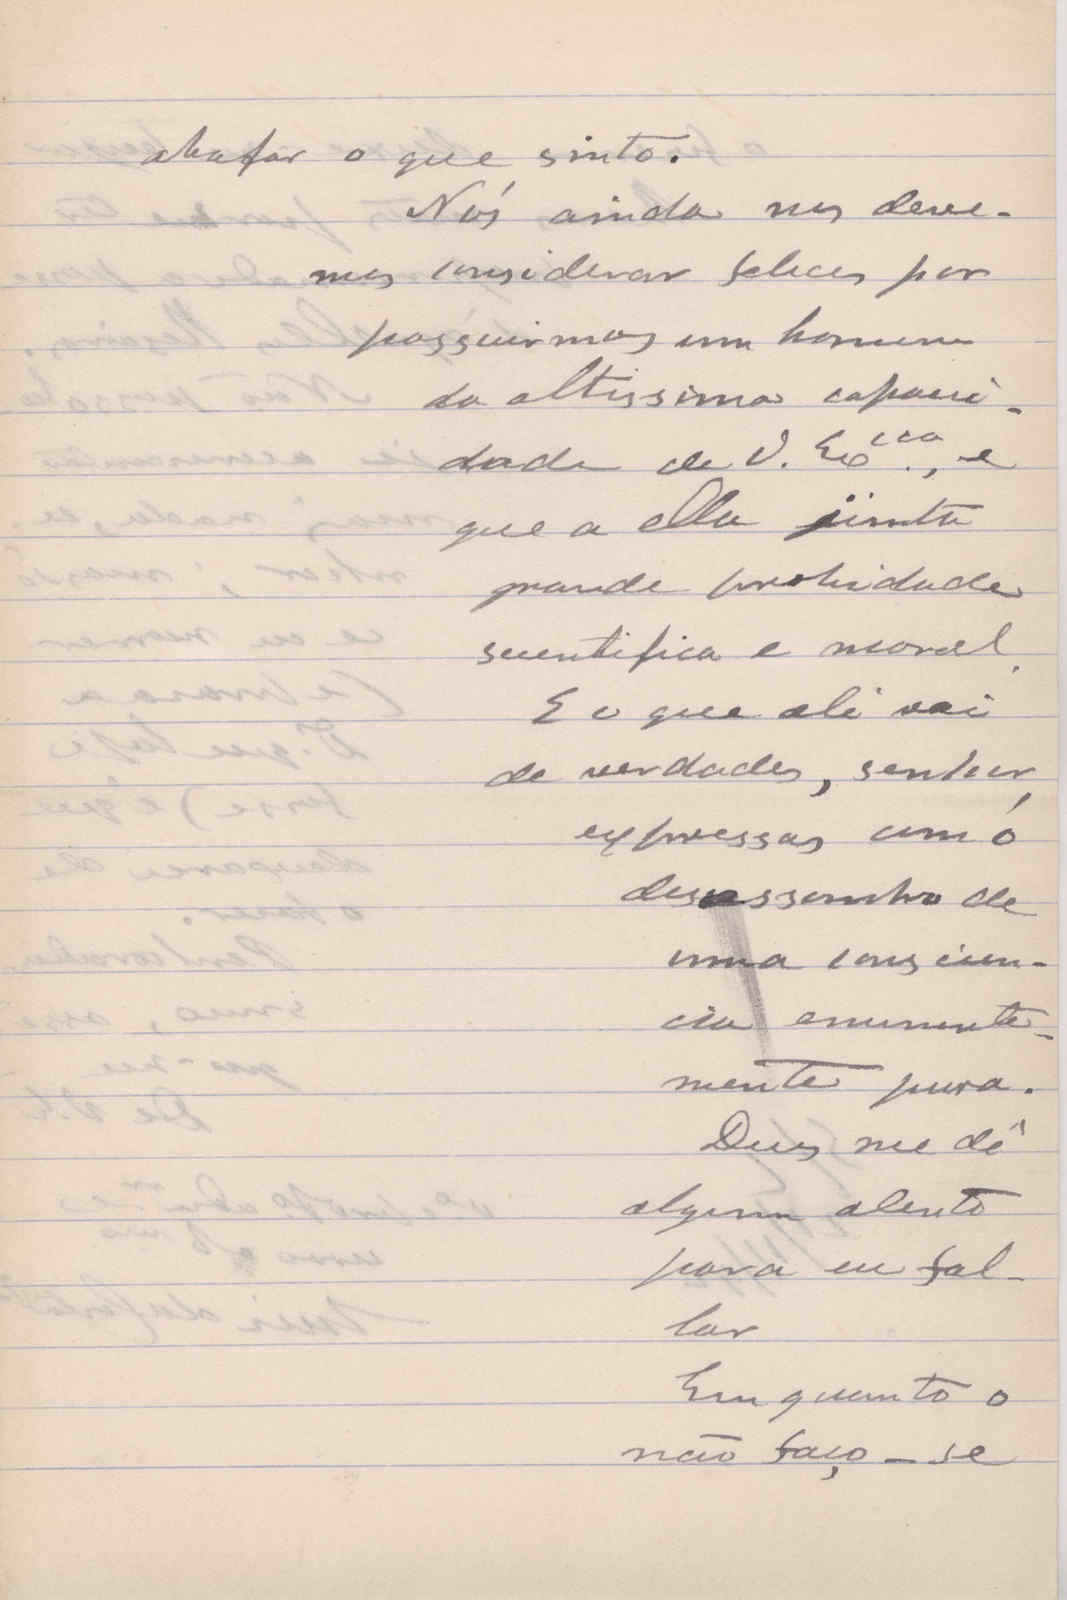 abafar o que sinto.
Nós ainda nos deve-
mos considerar felices por
possuirmos um homem
da altissima capaci-
dade de V. Ex.cia, e
que a ella junta
grande probidade
scientifica e moral.
E o que ali vai
de verdades, senhor,
expressas com ó
desassombro de
uma conscien-
cia eminente-
mente pura.
Deus me dê
algum alento
para eu fal-
lar
Emquanto o
não faço - se